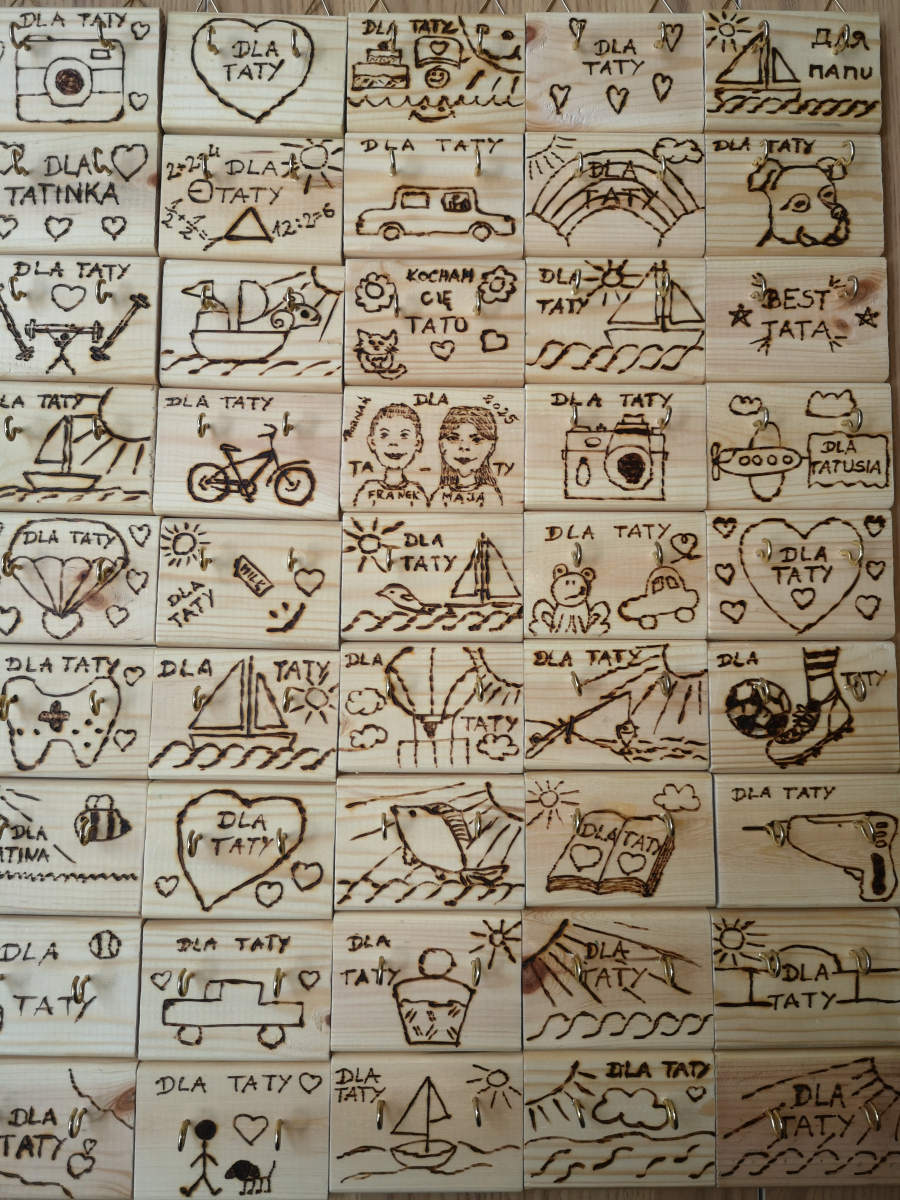 DLA TATY
DLA
TATY
DLA TATY
DLA
TATY
ДЛЯ
ПАПИ
DLA
TATINKA
2+2=4
DLA
TATY
1/2+1/2=
12:2=6
DLA TATY
DLA
TATY
DLA TATY
DLA TATY
KOCHAM
CIĘ
TATO
DLA
TATY
BEST
TATA
LA TATY
DLA TATY
DLA
2025
TA - TY
FRANEK MAJA
DLA TATY
DLA
TATUSIA
DLA TATY
MILK
DLA
TATY
DLA
TATY
DLA TATY
DLA
TATY
DLA TATY
DLA TATY
DLA
TATY
DLA TATY
DLA
TATY
DLA
TINA
DLA
TATY
DLA TATY
DLA TATY
DLA
TATY
DLA TATY
DLA
TATY
DLA
TATY
DLA
TATY
DLA
TATY
DLA TATY
DLA
TATY
DLA TATY
DLA
TATY